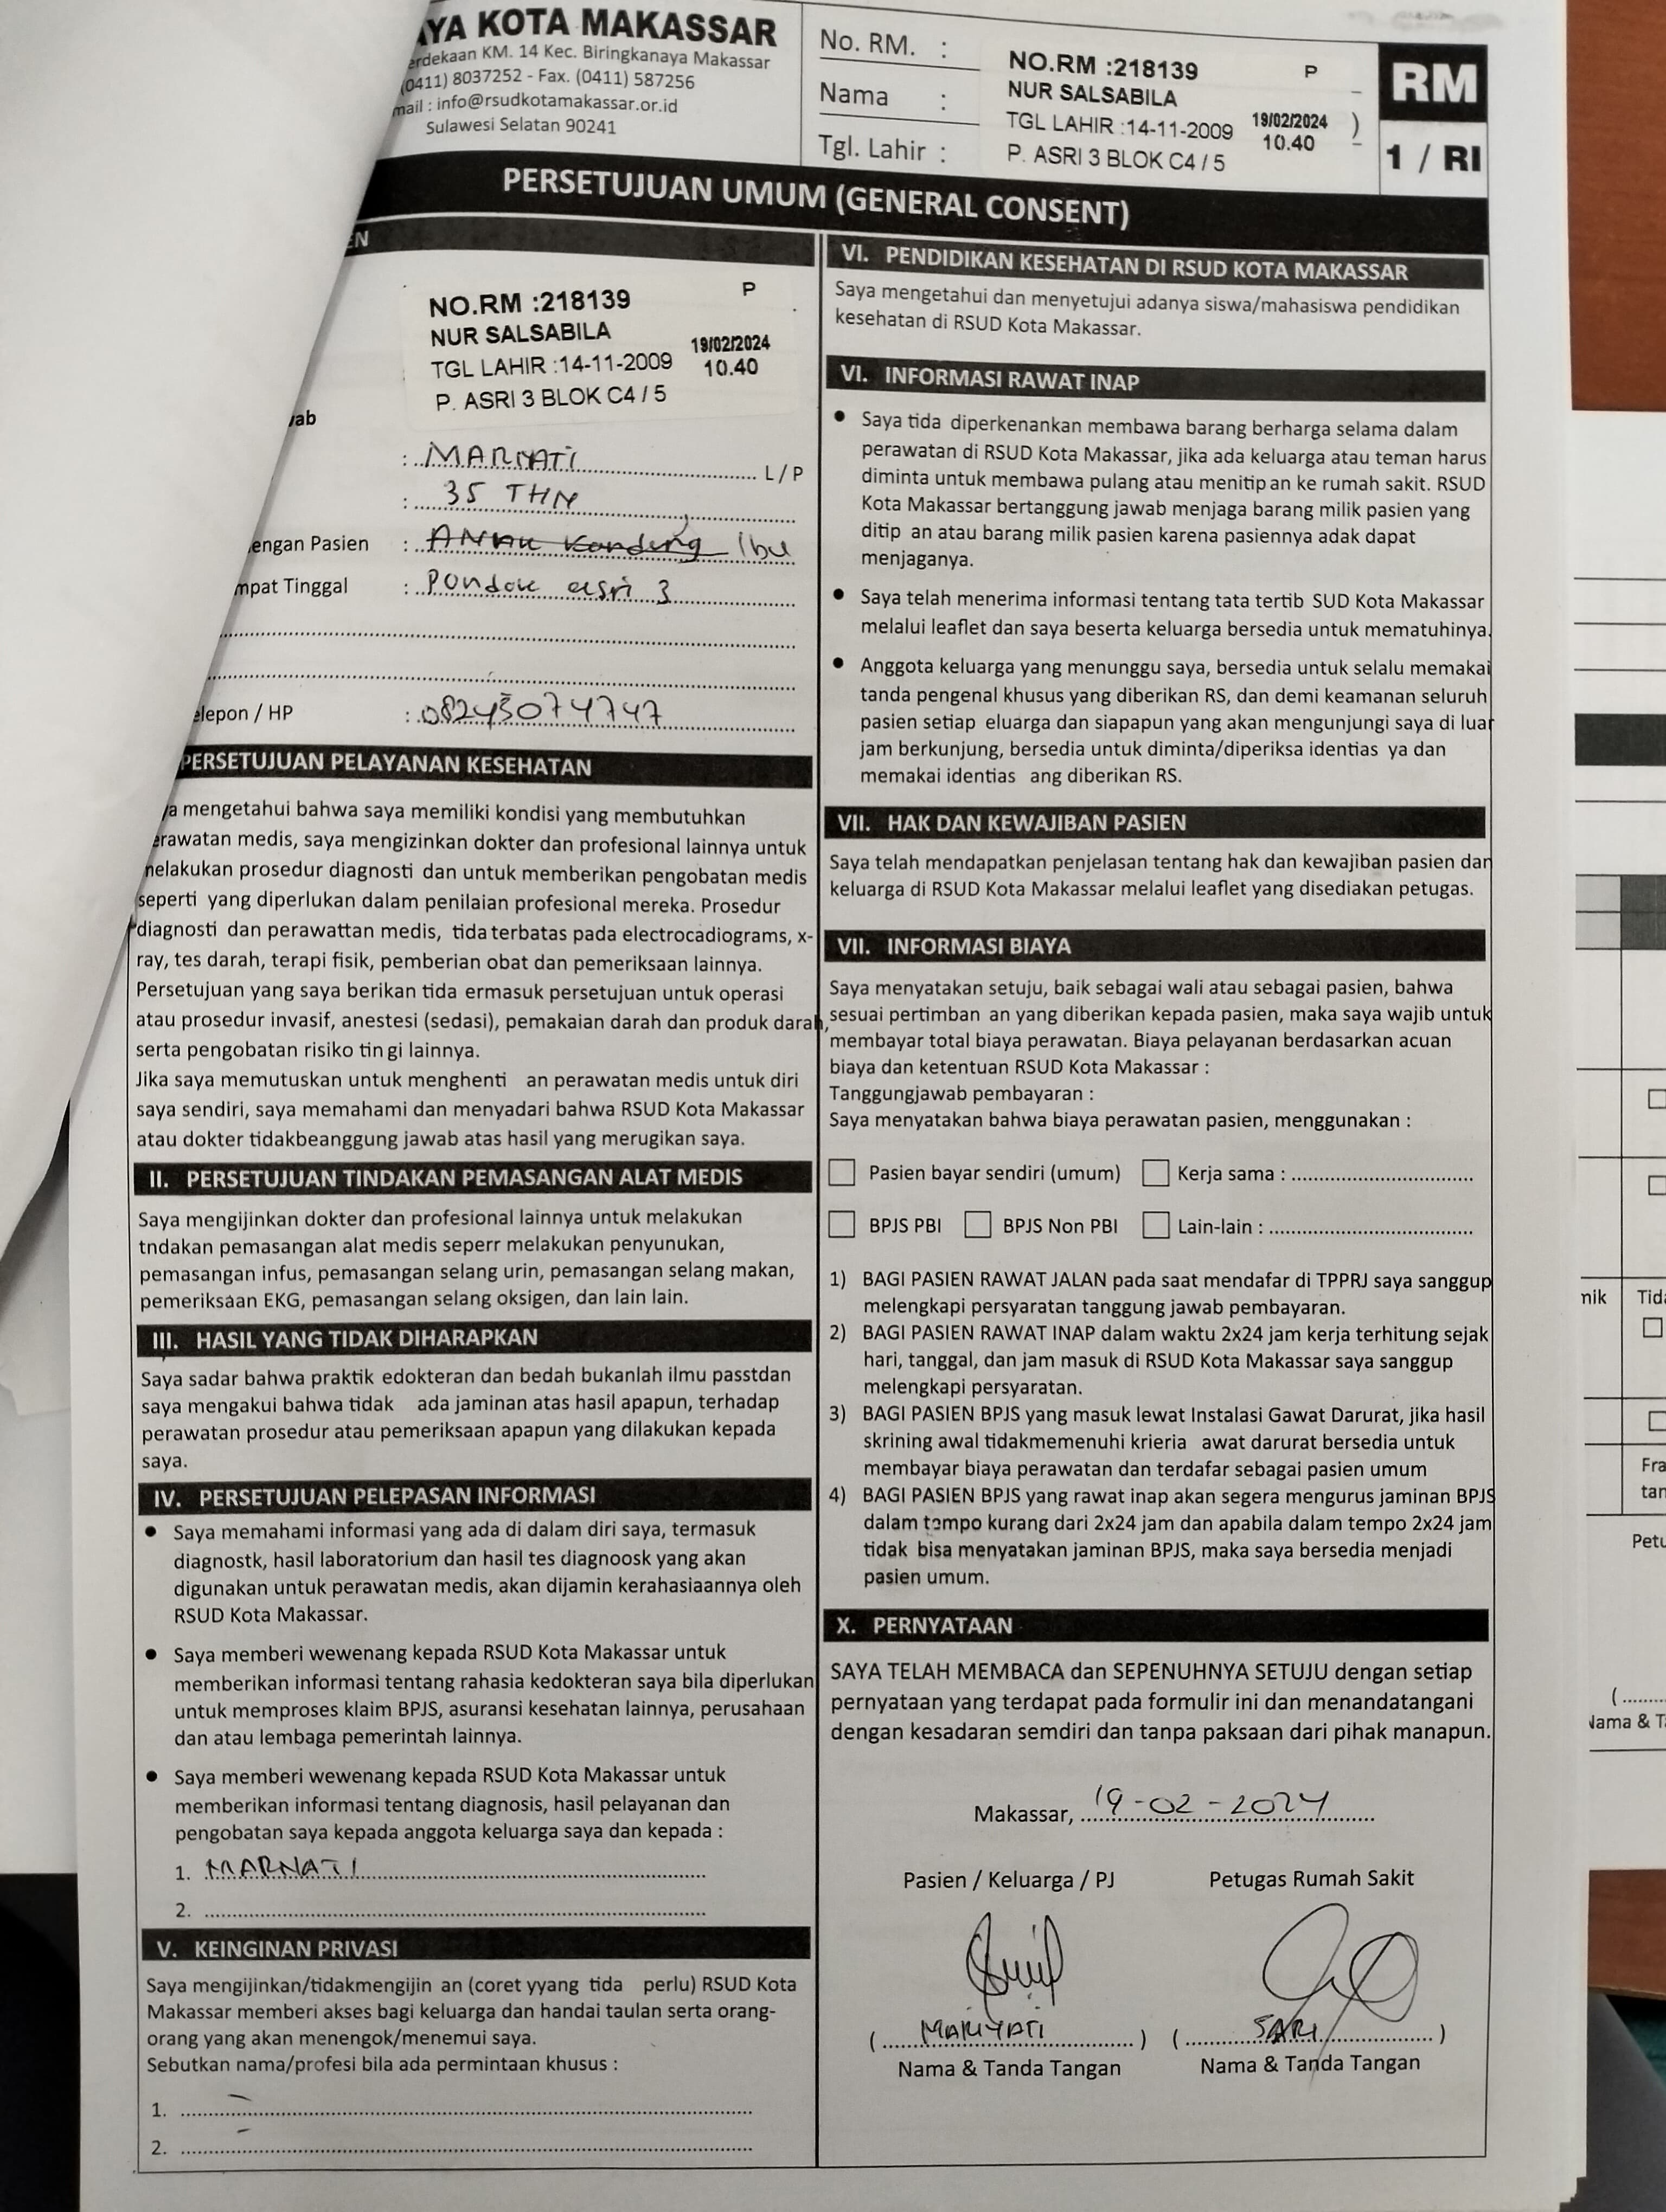 AYA KOTA MAKASSAR
erdekaan KM. 14 Kec. Biringkanaya Makassar
(0411) 8037252 - Fax. (0411) 587256
mail : info@rsudkotamakassar.or.id
Sulawesi Selatan 90241
No. RM. :
Nama :
Tgl. Lahir :
NO.RM :218139 P
NUR SALSABILA
TGL LAHIR :14-11-2009 19/02/2024 )
10.40
P. ASRI 3 BLOK C4 / 5
RM
1 / RI
PERSETUJUAN UMUM (GENERAL CONSENT)
EN
NO.RM :218139 P
NUR SALSABILA
TGL LAHIR :14-11-2009 19/02/2024
10.40
P. ASRI 3 BLOK C4 / 5
ab
: MARIYATI L / P
: 35 THN
engan Pasien : Anak Kandung Ibu
mpat Tinggal : Pondok asri 3
elepon / HP : 08243074747
PERSETUJUAN PELAYANAN KESEHATAN
a mengetahui bahwa saya memiliki kondisi yang membutuhkan
erawatan medis, saya mengizinkan dokter dan profesional lainnya untuk
melakukan prosedur diagnosti dan untuk memberikan pengobatan medis
seperti yang diperlukan dalam penilaian profesional mereka. Prosedur
diagnosti dan perawattan medis, tida terbatas pada electrocadiograms, x-
ray, tes darah, terapi fisik, pemberian obat dan pemeriksaan lainnya.
Persetujuan yang saya berikan tida ermasuk persetujuan untuk operasi
atau prosedur invasif, anestesi (sedasi), pemakaian darah dan produk darah,
serta pengobatan risiko tin gi lainnya.
Jika saya memutuskan untuk menghenti an perawatan medis untuk diri
saya sendiri, saya memahami dan menyadari bahwa RSUD Kota Makassar
atau dokter tidakbeanggung jawab atas hasil yang merugikan saya.
II. PERSETUJUAN TINDAKAN PEMASANGAN ALAT MEDIS
Saya mengijinkan dokter dan profesional lainnya untuk melakukan
tndakan pemasangan alat medis seperr melakukan penyunukan,
pemasangan infus, pemasangan selang urin, pemasangan selang makan,
pemeriksaan EKG, pemasangan selang oksigen, dan lain lain.
III. HASIL YANG TIDAK DIHARAPKAN
Saya sadar bahwa praktik edokteran dan bedah bukanlah ilmu passtdan
saya mengakui bahwa tidak ada jaminan atas hasil apapun, terhadap
perawatan prosedur atau pemeriksaan apapun yang dilakukan kepada
saya.
IV. PERSETUJUAN PELEPASAN INFORMASI
• Saya memahami informasi yang ada di dalam diri saya, termasuk
diagnostk, hasil laboratorium dan hasil tes diagnoosk yang akan
digunakan untuk perawatan medis, akan dijamin kerahasiaannya oleh
RSUD Kota Makassar.
• Saya memberi wewenang kepada RSUD Kota Makassar untuk
memberikan informasi tentang rahasia kedokteran saya bila diperlukan
untuk memproses klaim BPJS, asuransi kesehatan lainnya, perusahaan
dan atau lembaga pemerintah lainnya.
• Saya memberi wewenang kepada RSUD Kota Makassar untuk
memberikan informasi tentang diagnosis, hasil pelayanan dan
pengobatan saya kepada anggota keluarga saya dan kepada :
1. MARNATI
2.
V. KEINGINAN PRIVASI
Saya mengijinkan/tidakmengijin an (coret yyang tida perlu) RSUD Kota
Makassar memberi akses bagi keluarga dan handai taulan serta orang-
orang yang akan menengok/menemui saya.
Sebutkan nama/profesi bila ada permintaan khusus :
1. -
2. -
VI. PENDIDIKAN KESEHATAN DI RSUD KOTA MAKASSAR
Saya mengetahui dan menyetujui adanya siswa/mahasiswa pendidikan
kesehatan di RSUD Kota Makassar.
VI. INFORMASI RAWAT INAP
• Saya tida diperkenankan membawa barang berharga selama dalam
perawatan di RSUD Kota Makassar, jika ada keluarga atau teman harus
diminta untuk membawa pulang atau menitip an ke rumah sakit. RSUD
Kota Makassar bertanggung jawab menjaga barang milik pasien yang
ditip an atau barang milik pasien karena pasiennya adak dapat
menjaganya.
• Saya telah menerima informasi tentang tata tertib SUD Kota Makassar
melalui leaflet dan saya beserta keluarga bersedia untuk mematuhinya.
• Anggota keluarga yang menunggu saya, bersedia untuk selalu memakai
tanda pengenal khusus yang diberikan RS, dan demi keamanan seluruh
pasien setiap eluarga dan siapapun yang akan mengunjungi saya di luar
jam berkunjung, bersedia untuk diminta/diperiksa identias ya dan
memakai identias ang diberikan RS.
VII. HAK DAN KEWAJIBAN PASIEN
Saya telah mendapatkan penjelasan tentang hak dan kewajiban pasien dan
keluarga di RSUD Kota Makassar melalui leaflet yang disediakan petugas.
VII. INFORMASI BIAYA
Saya menyatakan setuju, baik sebagai wali atau sebagai pasien, bahwa
sesuai pertimban an yang diberikan kepada pasien, maka saya wajib untuk
membayar total biaya perawatan. Biaya pelayanan berdasarkan acuan
biaya dan ketentuan RSUD Kota Makassar :
Tanggungjawab pembayaran :
Saya menyatakan bahwa biaya perawatan pasien, menggunakan :
Pasien bayar sendiri (umum) Kerja sama :
BPJS PBI BPJS Non PBI Lain-lain :
1) BAGI PASIEN RAWAT JALAN pada saat mendafar di TPPRJ saya sanggup
melengkapi persyaratan tanggung jawab pembayaran.
2) BAGI PASIEN RAWAT INAP dalam waktu 2x24 jam kerja terhitung sejak
hari, tanggal, dan jam masuk di RSUD Kota Makassar saya sanggup
melengkapi persyaratan.
3) BAGI PASIEN BPJS yang masuk lewat Instalasi Gawat Darurat, jika hasil
skrining awal tidakmemenuhi krieria awat darurat bersedia untuk
membayar biaya perawatan dan terdafar sebagai pasien umum
4) BAGI PASIEN BPJS yang rawat inap akan segera mengurus jaminan BPJS
dalam tempo kurang dari 2x24 jam dan apabila dalam tempo 2x24 jam
tidak bisa menyatakan jaminan BPJS, maka saya bersedia menjadi
pasien umum.
X. PERNYATAAN
SAYA TELAH MEMBACA dan SEPENUHNYA SETUJU dengan setiap
pernyataan yang terdapat pada formulir ini dan menandatangani
dengan kesadaran semdiri dan tanpa paksaan dari pihak manapun.
Makassar, 19-02-2024
Pasien / Keluarga / PJ Petugas Rumah Sakit
( MARIYATI ) ( SARI )
Nama & Tanda Tangan Nama & Tanda Tangan
nik Tida
Fra
tan
Petu
(
Nama & T